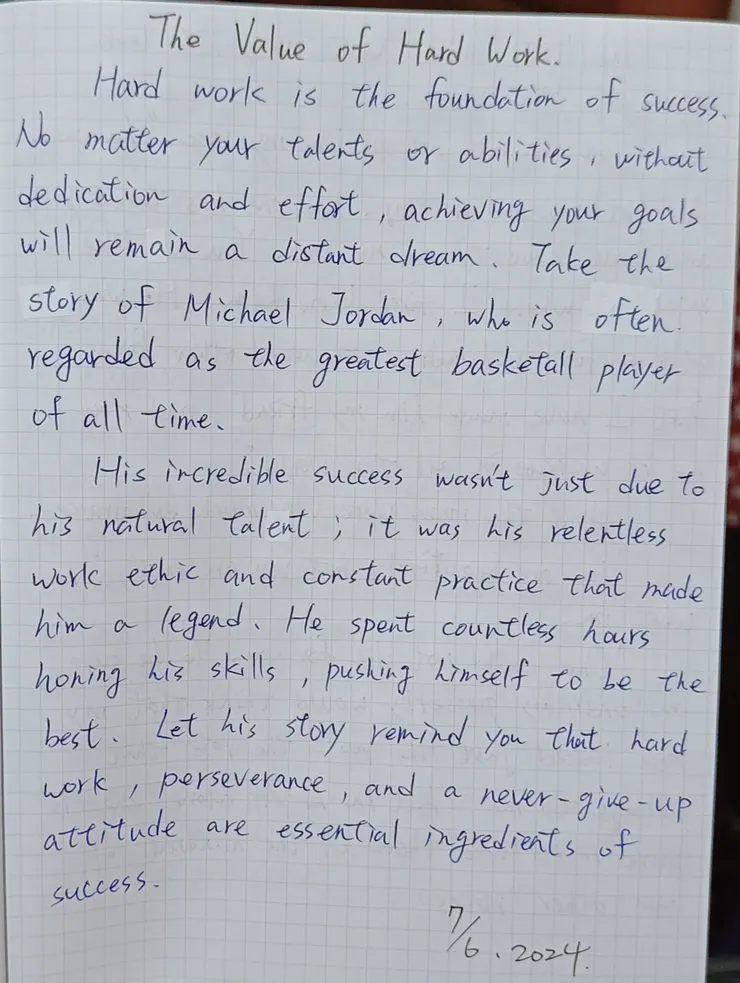 The Value of Hard Work.
Hard work is the foundation of success.
No matter your talents or abilities, without
dedication and effort, achieving your goals
will remain a distant dream. Take the
story of Michael Jordan, who is often
regarded as the greatest basketall player
of all time.
His incredible success wasn't just due to
his natural talent; it was his relentless
work ethic and constant practice that made
him a legend. He spent countless hours
honing his skills, pushing himself to be the
best. Let his story remind you that hard
work, perseverance, and a never-give-up
attitude are essential ingredients of
success.
7/6.2024.